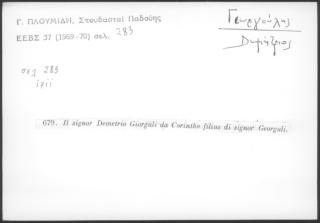 Γ. ΠΛΟΥΜΙΔΗ, Στουδασταί Παδούης
ΕΕΒΣ 37 (1969-70) σελ. 283
Γεωργούλης
Δημήτριος
σελ 283
1711
679. Il signor Demetrio Giorguli da Corintho filius di signor Georguli.